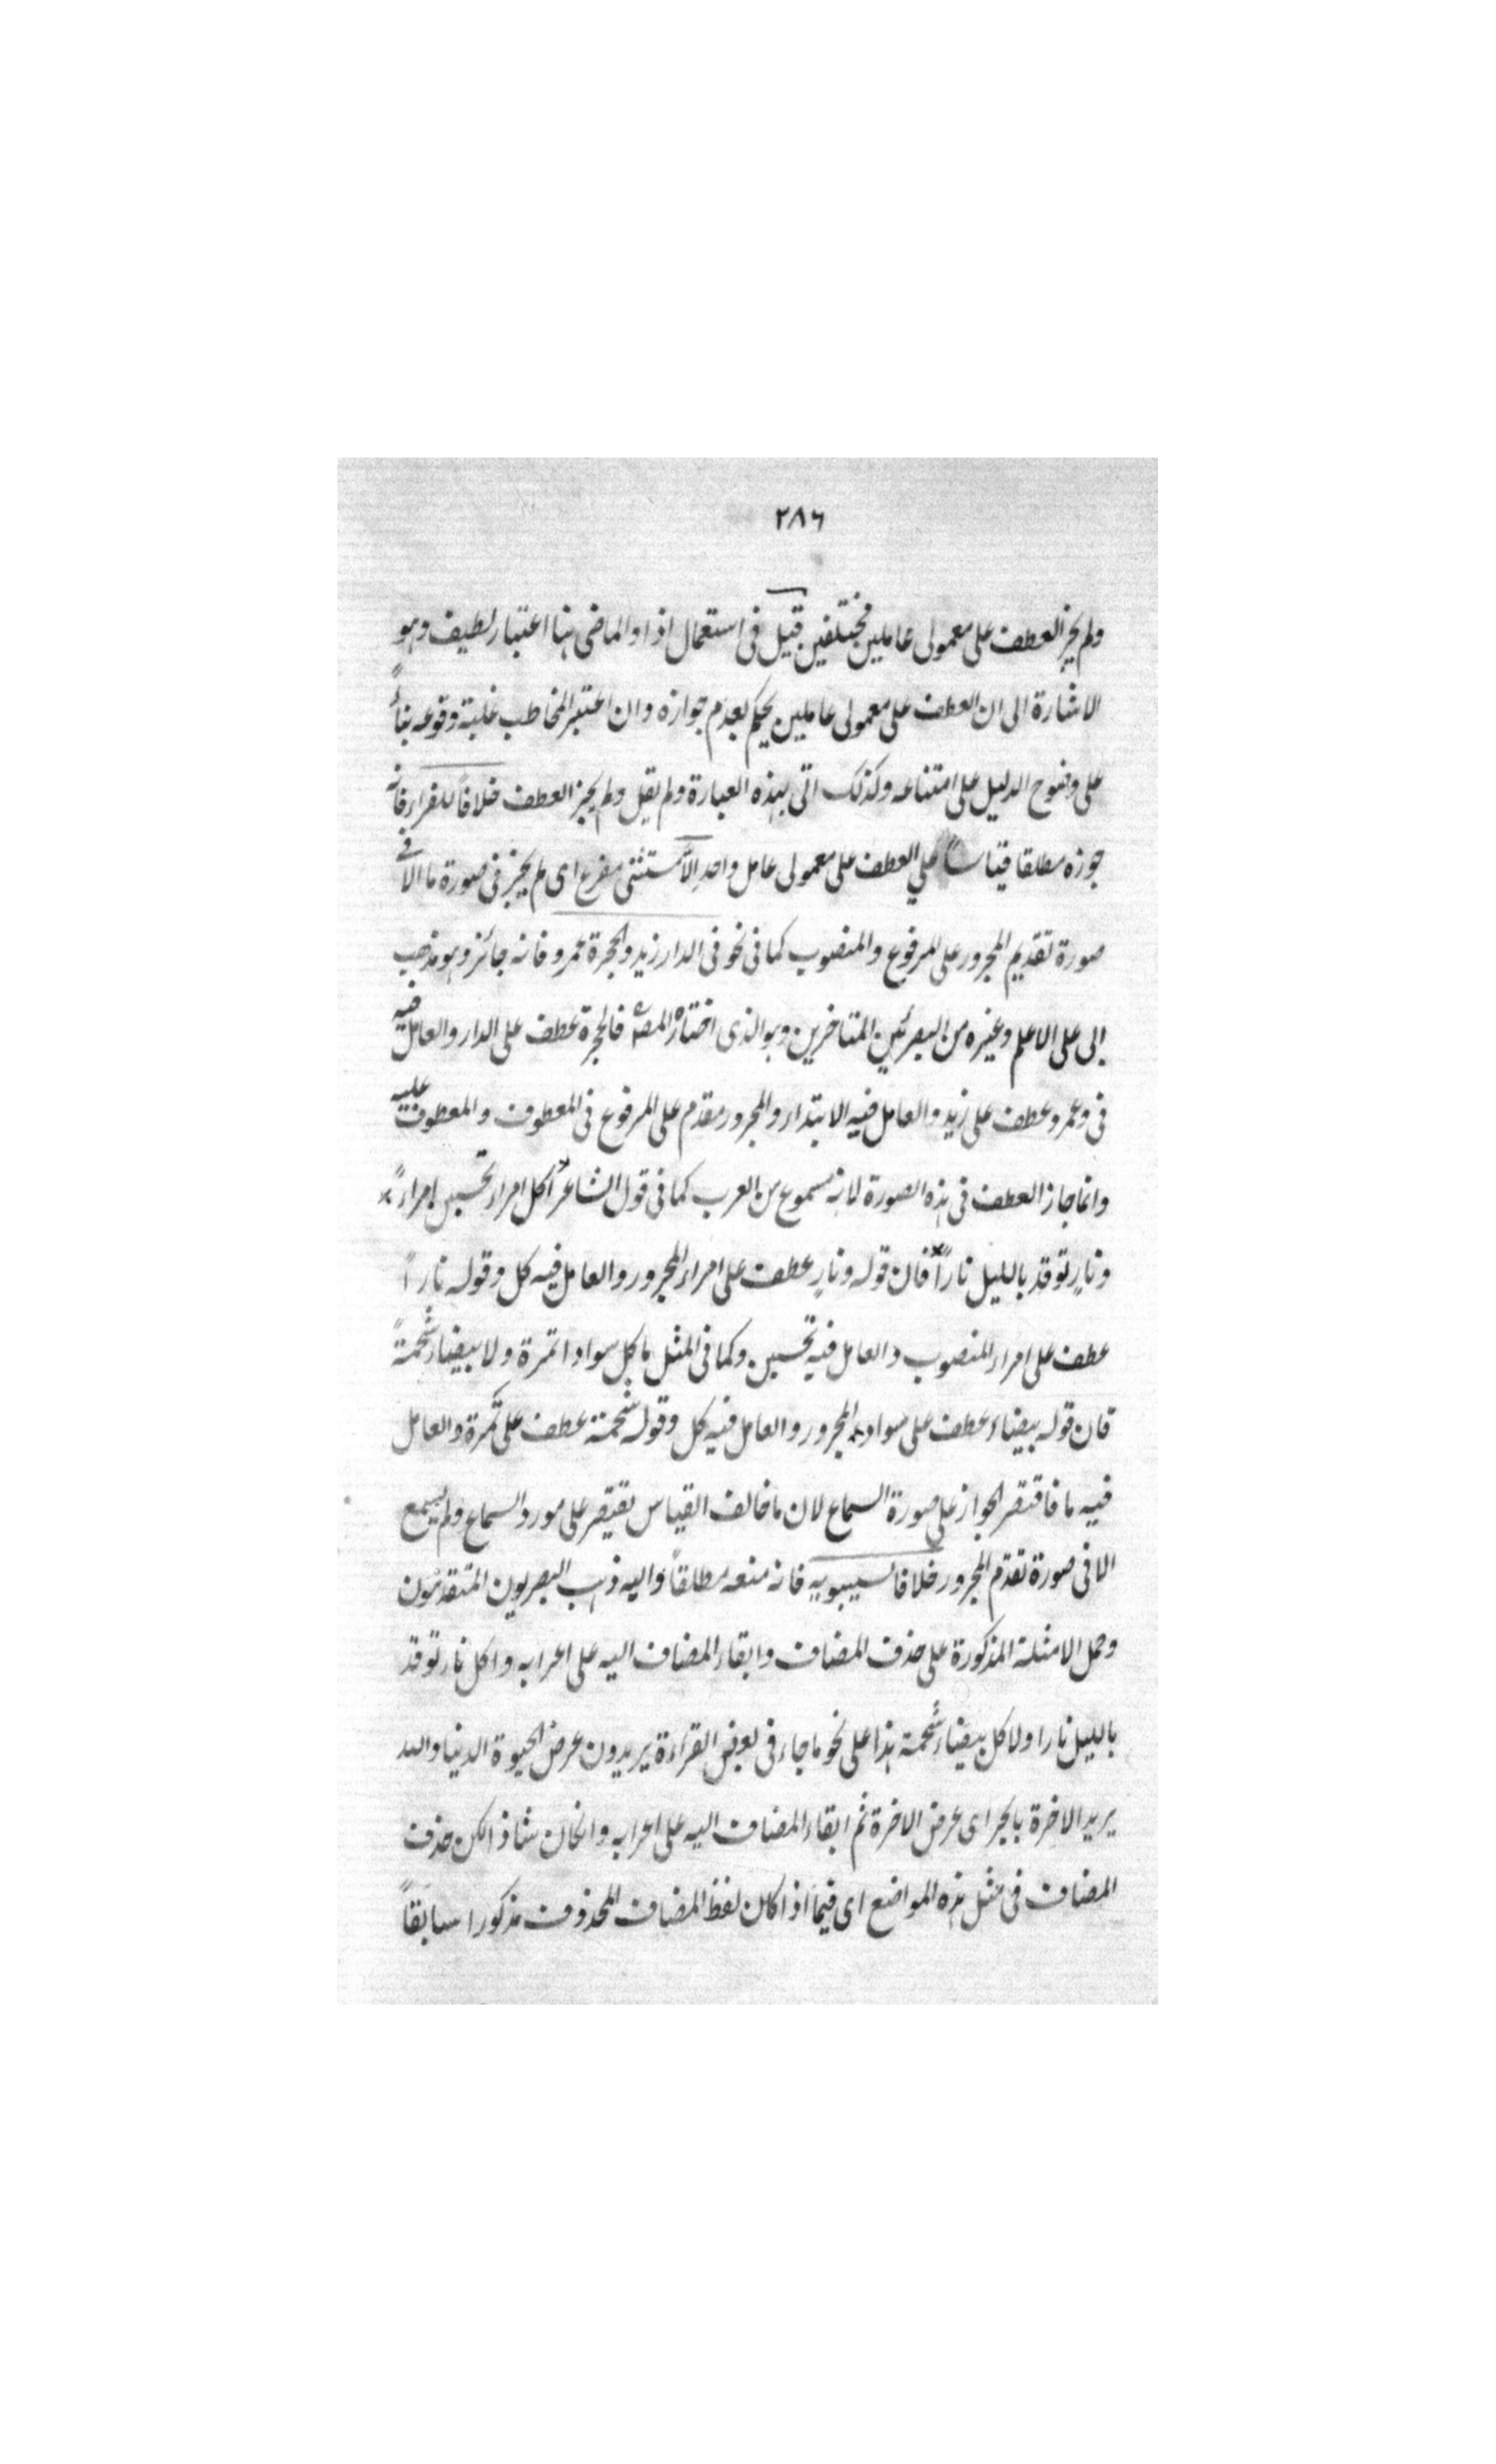 ٢٨٦
ولم يجز العطف على معمولى عاملين مختلفين قيل فى استعمال اذا والماضى هنا اعتبار لطيف وهو
الاشارة الى ان العطف على معمولى عاملين يحكم بعدم جوازه وان اعتبر المخاطب غلبة وقوعه بناءً
على وضوح الدليل على امتناعه وكذلك اتى بهذه العبارة ولم يقل ولم يجز العطف خلافاً للفراء فانه
جوزه مطلقا قياساً على العطف على معمولى عامل واحد الّا مستثنى مفرغ اى لم يجز فى صورة ما الا فى
صورة تقديم المجرور على المرفوع والمنصوب كما فى نحو فى الدار زيد والحجرة عمرو فانه جائز وهو مذهب
ابى على الاعلم وغيره من البصريين المتاخرين وهو الذى اختاره المصـ فالحجرة عطف على الدار والعامل فيه
فى وعمرو عطف على زيد والعامل فيه الابتداء والمجرور مقدم على المرفوع فى المعطوف والمعطوف عليه
وانما جاز العطف فى هذه الصورة لانه مسموع من العرب كما فى قول الشاعر أكل امراء تحسبين امراءً
ونارٍ توقد بالليل ناراً فان قوله ونارٍ عطف على امراء المجرور والعامل فيه كل وقوله ناراً
عطف على امراء المنصوب والعامل فيه تحسبين وكما فى المثل ما كل سواداء تمرة ولا بيضاء شحمةً
فان قوله بيضاء عطف على سوداء المجرور والعامل فيه كل وقوله شحمة عطف على تمرة والعامل
فيه ما فاقتصر الجواز على صورة السماع لان ما خالف القياس يقتصر على مورد السماع ولم يسمع
الا فى صورة تقدم المجرور خلافا لسيبويه فانه منعه مطلقاً واليه ذهب البصريون المتقدمون
وحمل الامثلة المذكورة على حذف المضاف وابقاء المضاف اليه على اعرابه واكل نار توقد
بالليل نارا ولا كل بيضاء شحمة هذا على نحو ما جاء فى بعض القراءة يريدون عرض الحيوة الدنيا والله
يريد الاخرة بالجر اى عرض الاخرة ثم ابقاء المضاف اليه على اعرابه وانكان شاذا لكن حذف
المضاف فى مثل هذه المواضع اى فيما اذا كان لفظ المضاف المحذوف مذكورا سابقاً